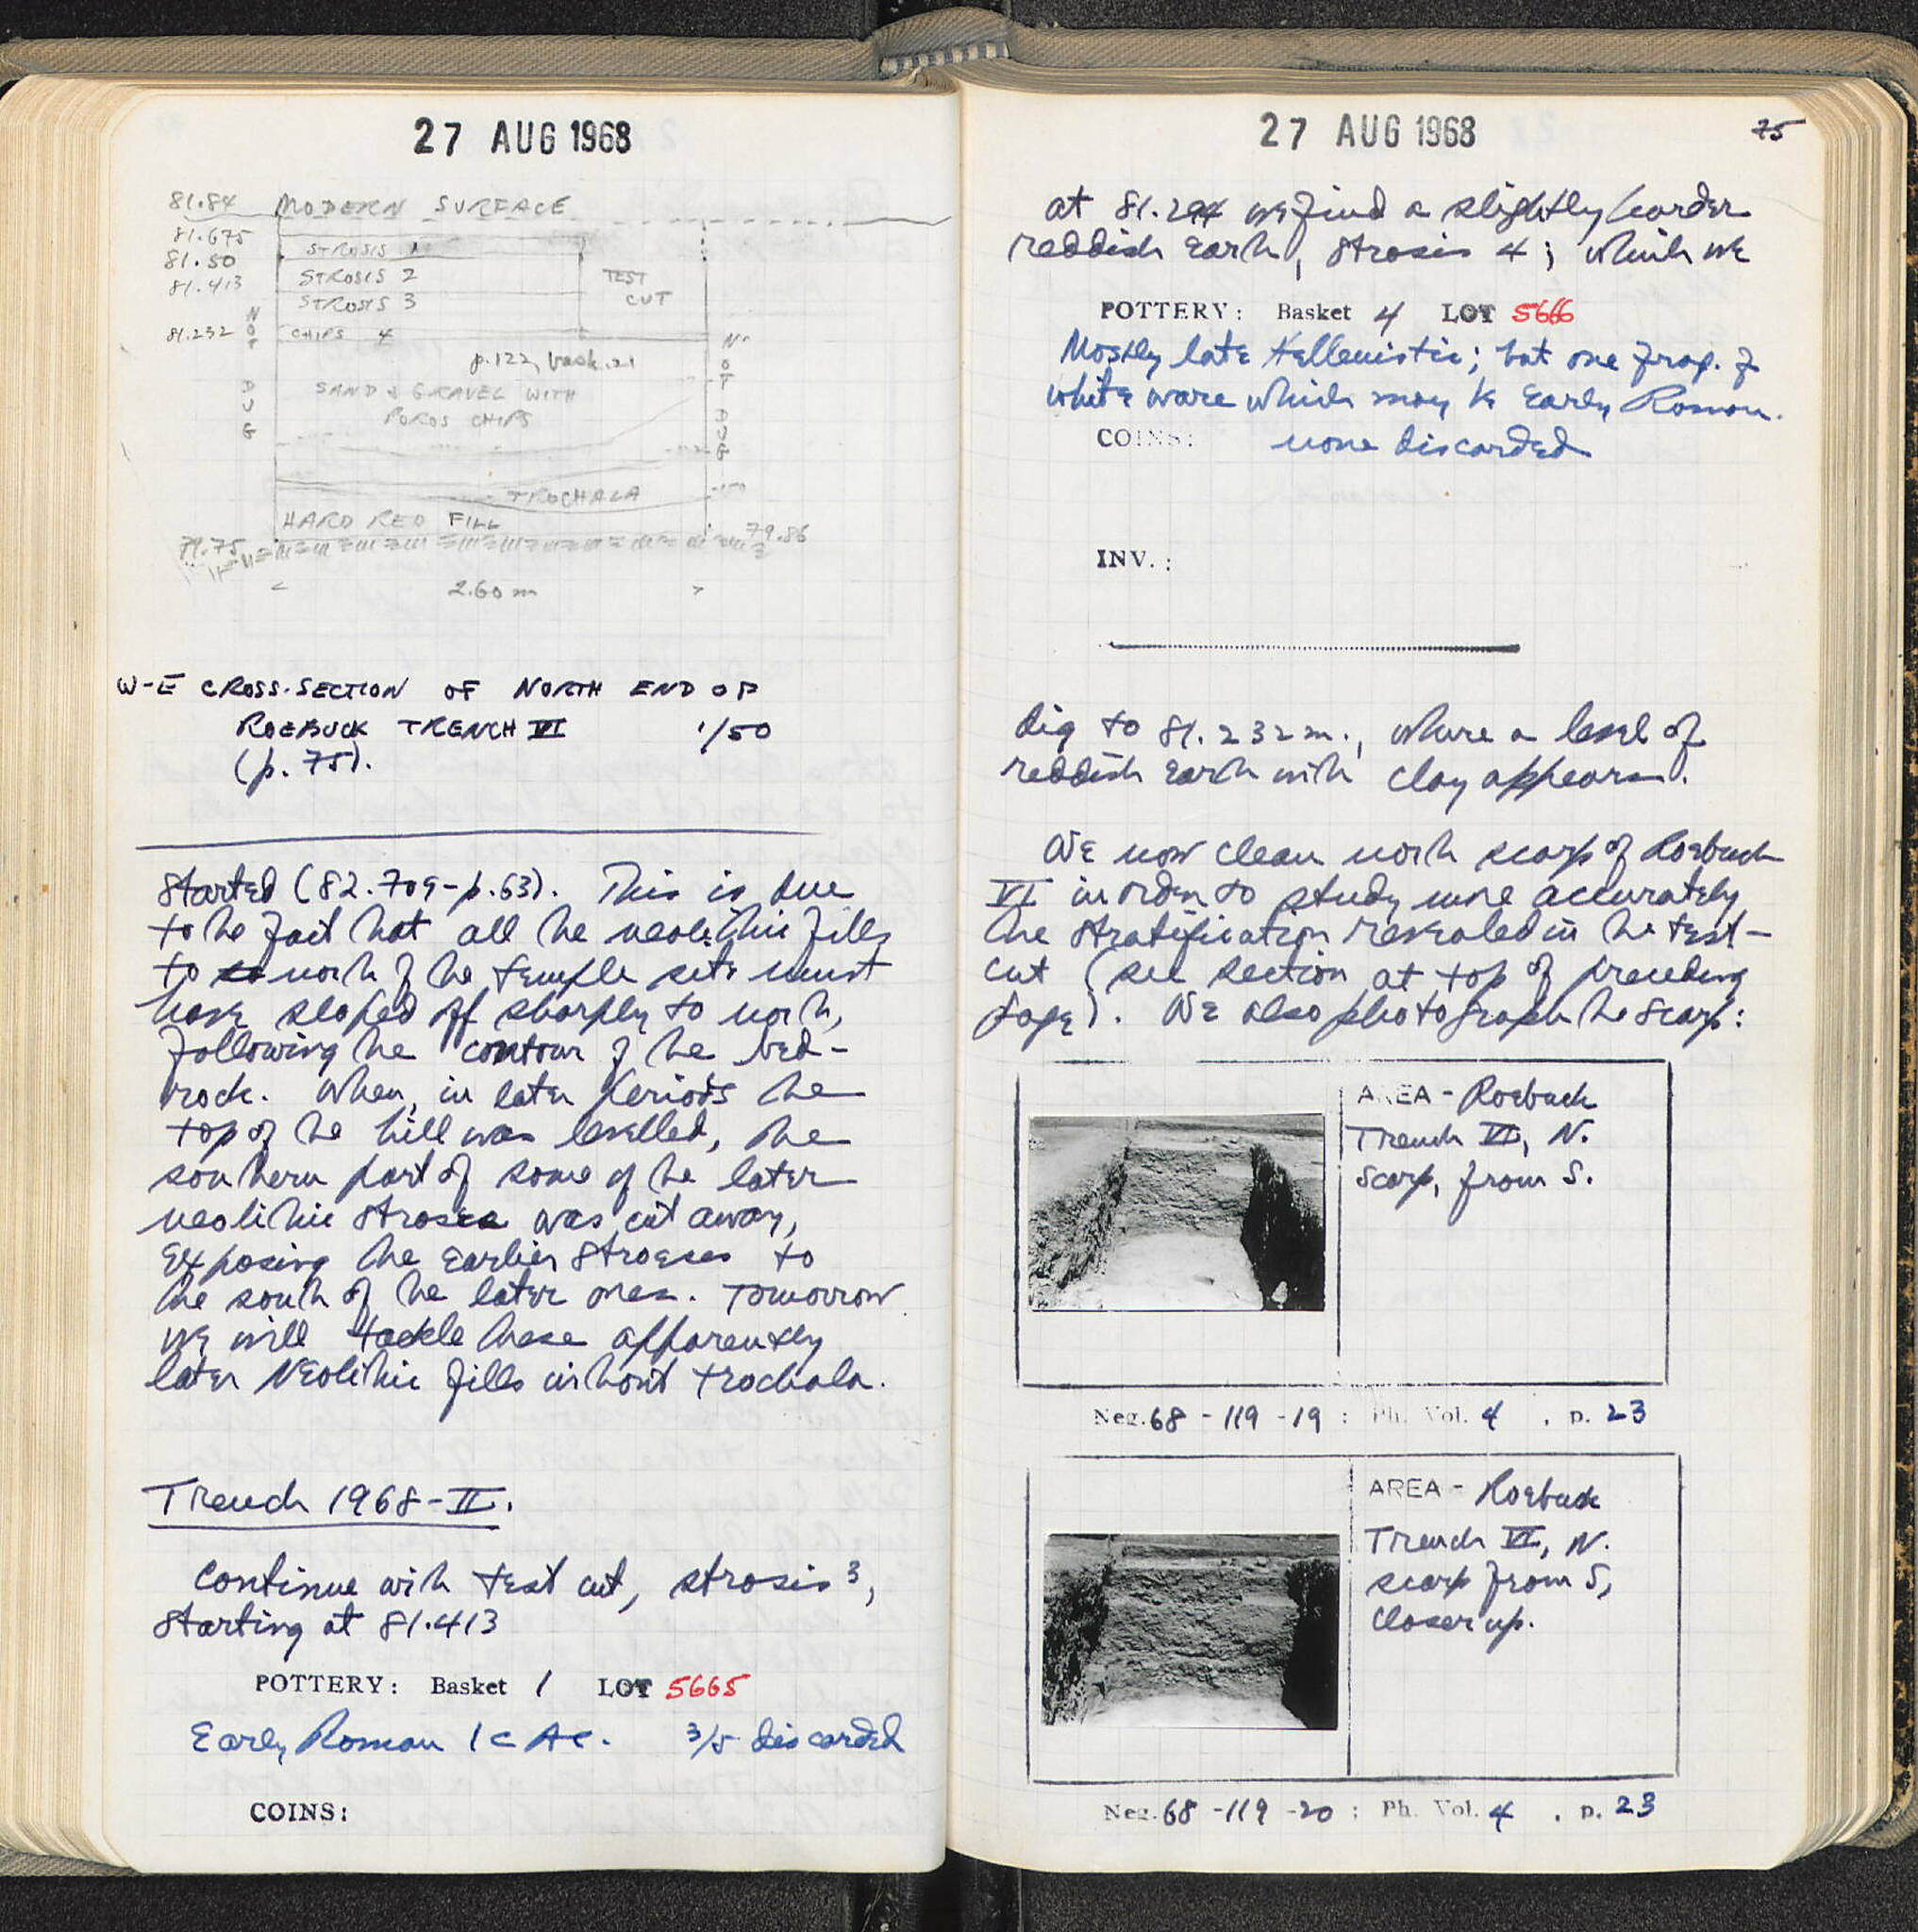 27 AUG 1968
81.84 MODERN SURFACE
81.675
STROSIS 1
81.50
STROSIS 2 TEST
81.413
STROSIS 3 CUT
81.232 CHIPS 4
NOT DUG
p.122, bask. 21
SAND & GRAVEL WITH
POROS CHIPS
NOT DUG
TROCHALA
HARD RED FILL
79.75 79.86
2.60 m
W-E CROSS-SECTION OF NORTH END OF
ROEBUCK TRENCH VI 1/50
(p. 75).
started (82.709-p.63). This is due
to the fact that all the neolithic fills
to north of the temple site must
have sloped off sharply to north,
following the contour of the bed-
rock. When, in later periods the
top of the hill was levelled, the
southern part of some of the later
neolithic stroses was cut away,
exposing the earlier stroses to
the south of the later ones. Tomorrow
we will tackle these apparently
later Neolithic fills without trochala.
Trench 1968-II.
Continue with test cut, strosis 3,
starting at 81.413
POTTERY: Basket 1 LOT 5665
Early Roman 1 c AC. 3/5 discarded
COINS:
27 AUG 1968
75
at 81.294 we find a slightly harder
reddish earth, strosis 4; which we
POTTERY: Basket 4 LOT 5666
Mostly late Hellenistic; but one frag. of
white ware which may be Early Roman.
COINS: none discarded
INV.:
dig to 81.232 m., where a level of
reddish earth with clay appears.
We now clean north scarp of Roebuck
VI in order to study more accurately
the stratification revealed in the test-
cut (see section at top of preceding
page). We also photograph the scarp:
AREA - Roebuck
Trench VI, N.
Scarp, from S.
Neg. 68-119-19: Ph. Vol. 4, p. 23
AREA - Roebuck
Trench VI, N.
scarp from S,
closer up.
Neg. 68-119-20: Ph. Vol. 4, p. 23